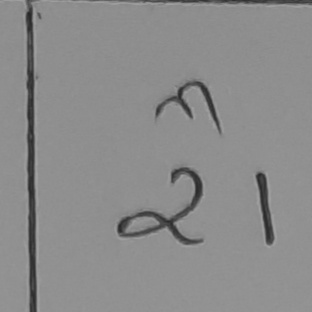 m
21